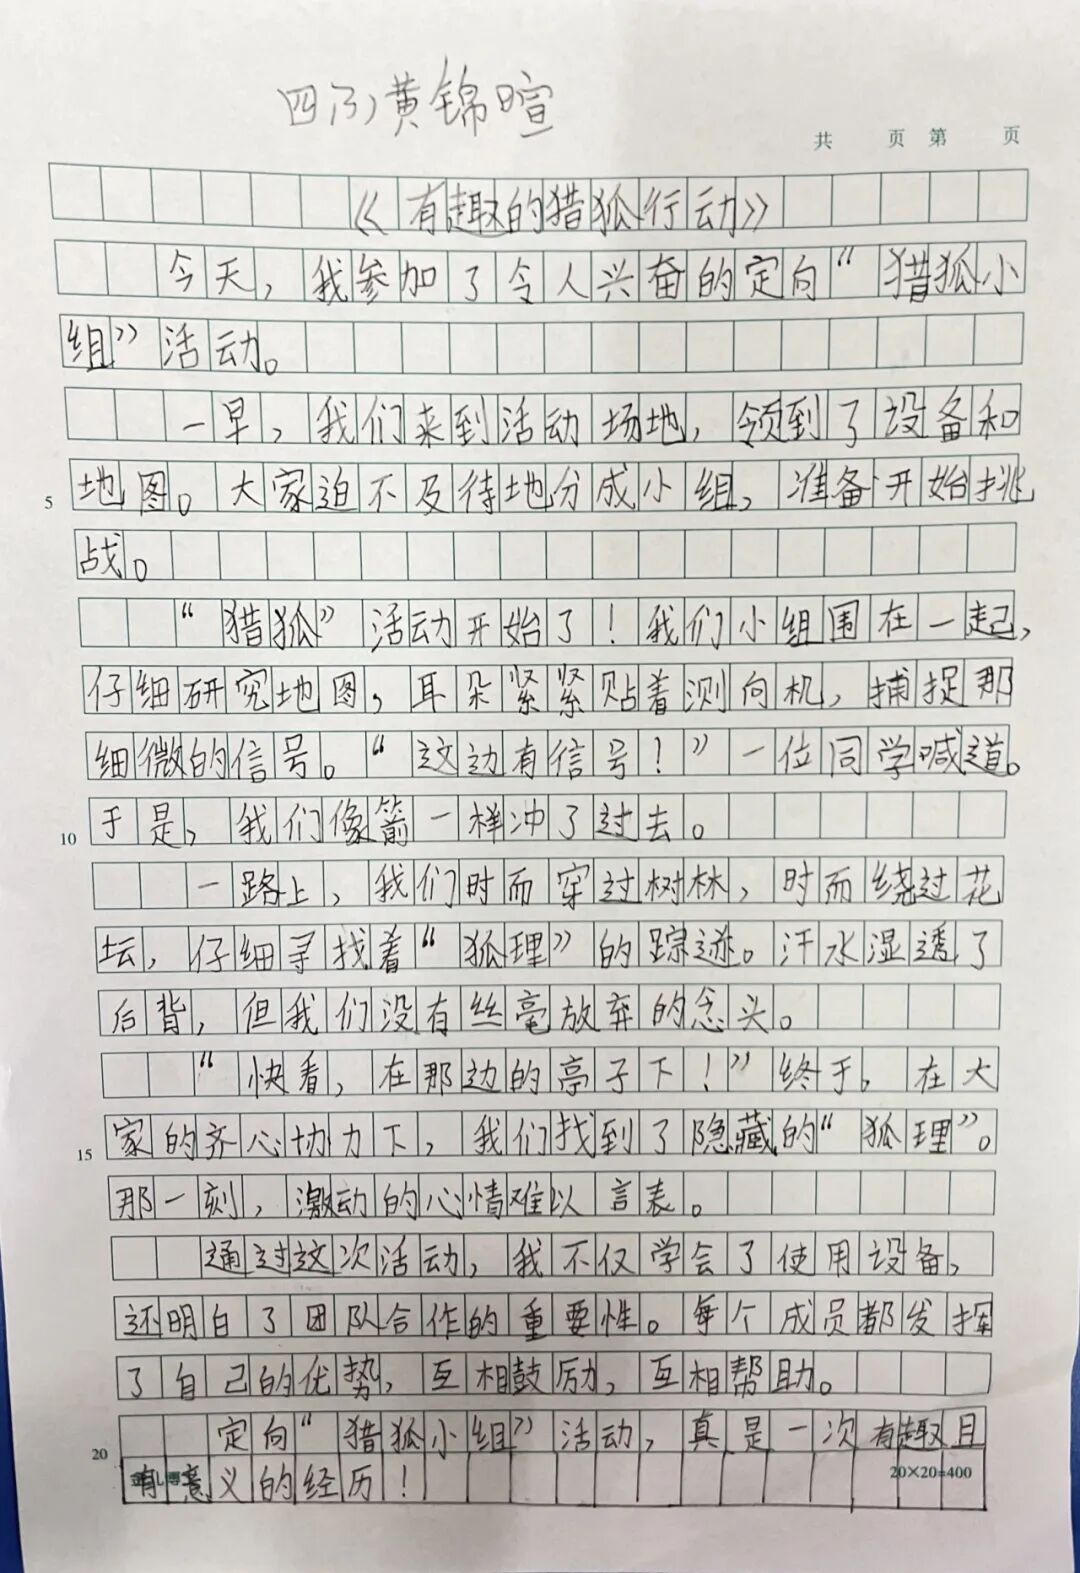 四(3)黄锦暄
共 页 第 页
《有趣的猎狐行动》
今天,我参加了令人兴奋的定向“猎狐小
组”活动。
一早,我们来到活动场地,领到了设备和
5 地图。大家迫不及待地分成小组,准备开始挑
战。
“猎狐”活动开始了!我们小组围在一起,
仔细研究地图,耳朵紧紧贴着测向机,捕捉那
细微的信号。“这边有信号!”一位同学喊道。
10 于是,我们像箭一样冲了过去。
一路上,我们时而穿过树林,时而绕过花
坛,仔细寻找着“狐理”的踪迹。汗水湿透了
后背,但我们没有丝毫放弃的念头。
“快看,在那边的亭子下!”终于,在大
15 家的齐心协力下,我们找到了隐藏的“狐理”。
那一刻,激动的心情难以言表。
通过这次活动,我不仅学会了使用设备,
还明白了团队合作的重要性。每个成员都发挥
了自己的优势,互相鼓励,互相帮助。
20 定向“猎狐小组”活动,真是一次有趣且
有意义的经历!
20×20=400